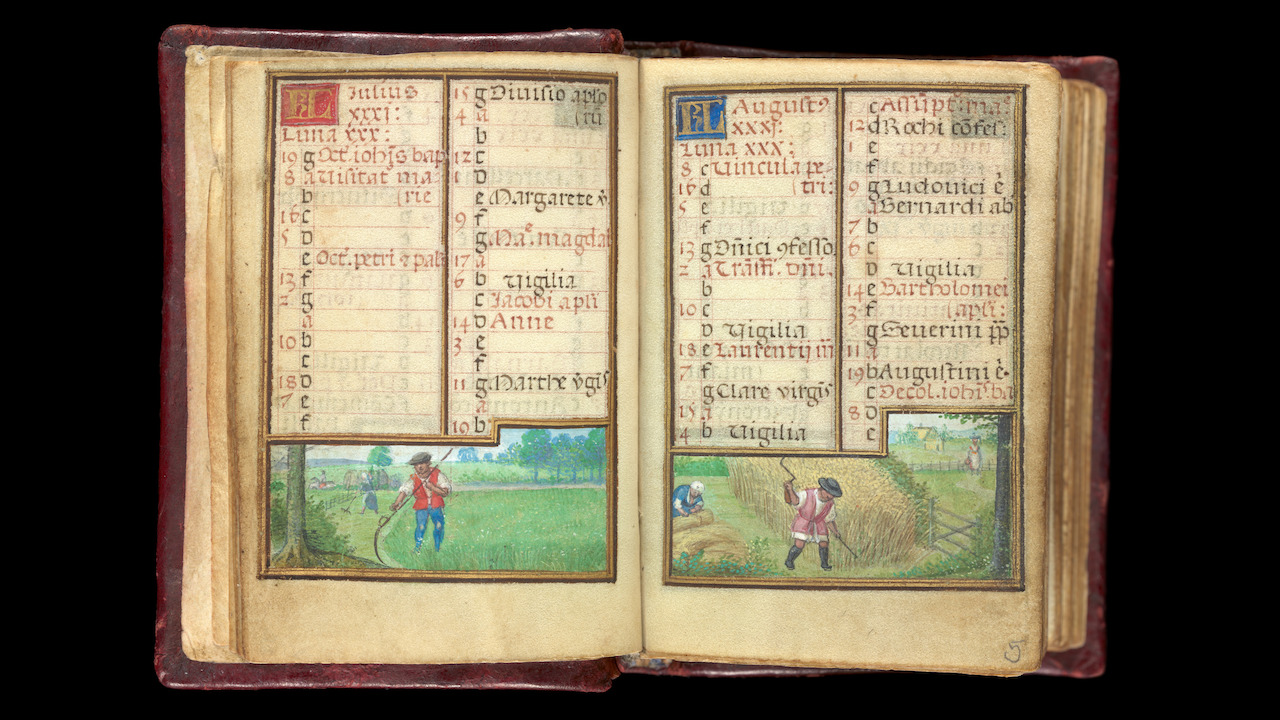 KL Julius
xxxj:
Luna xxx:
19 g Oct. ioh̄is bap
8 a Visitat ma
b (rie
16 c
5 D
e Oct. petri ⁊ pali
13 f
2 g
a
10 b
c
18 D
7 e
f
15 g Divisio aplo
4 a (rū
b
12 c
1 D
e Margarete v̄.
9 f
g Ma͛. magdal
17 a
6 b Vigilia
c Jacobi apli
14 D Anne
3 e
f
11 g Marthe v̄gis
a
19 b
KL August9
xxxj:
Luna xxx:
8 c Vincula pe
16 d (tri:
5 e
f
13 g Dn̄ici ꝯfesso
2 a Trāsfi. dn̄i.
b
10 c
D Vigilia
18 e Laurentij m̄
7 f
g Clare virgis
15 a
4 b Vigilia
c Assūpt. ma͛
12 d Rochi cōfes:
1 e
f
9 g Ludovici ē
a Bernardi ab
7 b
6 c
D Vigilia
14 e Bartholomei
3 f (apli:
g Severini p̄p
11 a
19 b Augustini ē.
c Decol. ioh̄is ba
8 D
e
5